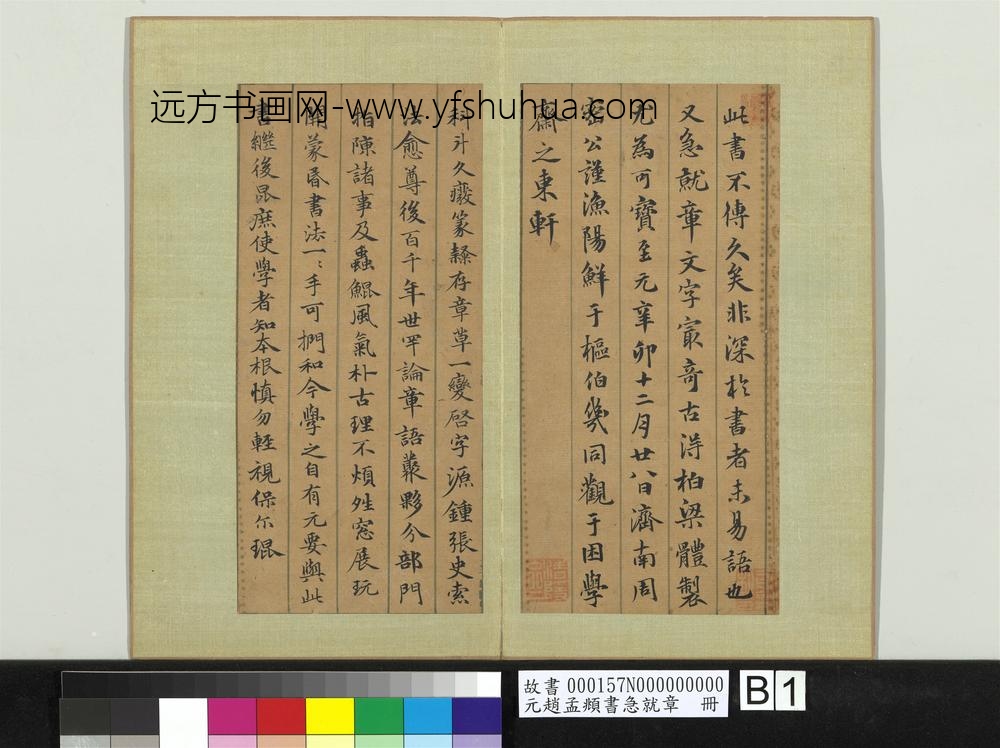 远方书画网-www.yfshuhua.com
此書不傳久矣非深於書者未易語也
又急就章文字㝡奇古得柏梁體製
尤為可寶至元辛卯十二月廿八日濟南周
密公謹漁陽鮮于樞伯幾同觀于困學
齋之東軒
科斗久癈篆隸存章草一變啓字源鍾張史索
法愈尊後百千年世罕論章語叢夥分部門
指陳諸事及蟲鯤風氣朴古理不煩姓窓展玩
開蒙昏書法一〻手可捫和今學之自有元要與此
書繼後昆庶使學者知本根慎勿輕視保尓琨
故書 000157N000000000
元趙孟頫書急就章 冊
B 1